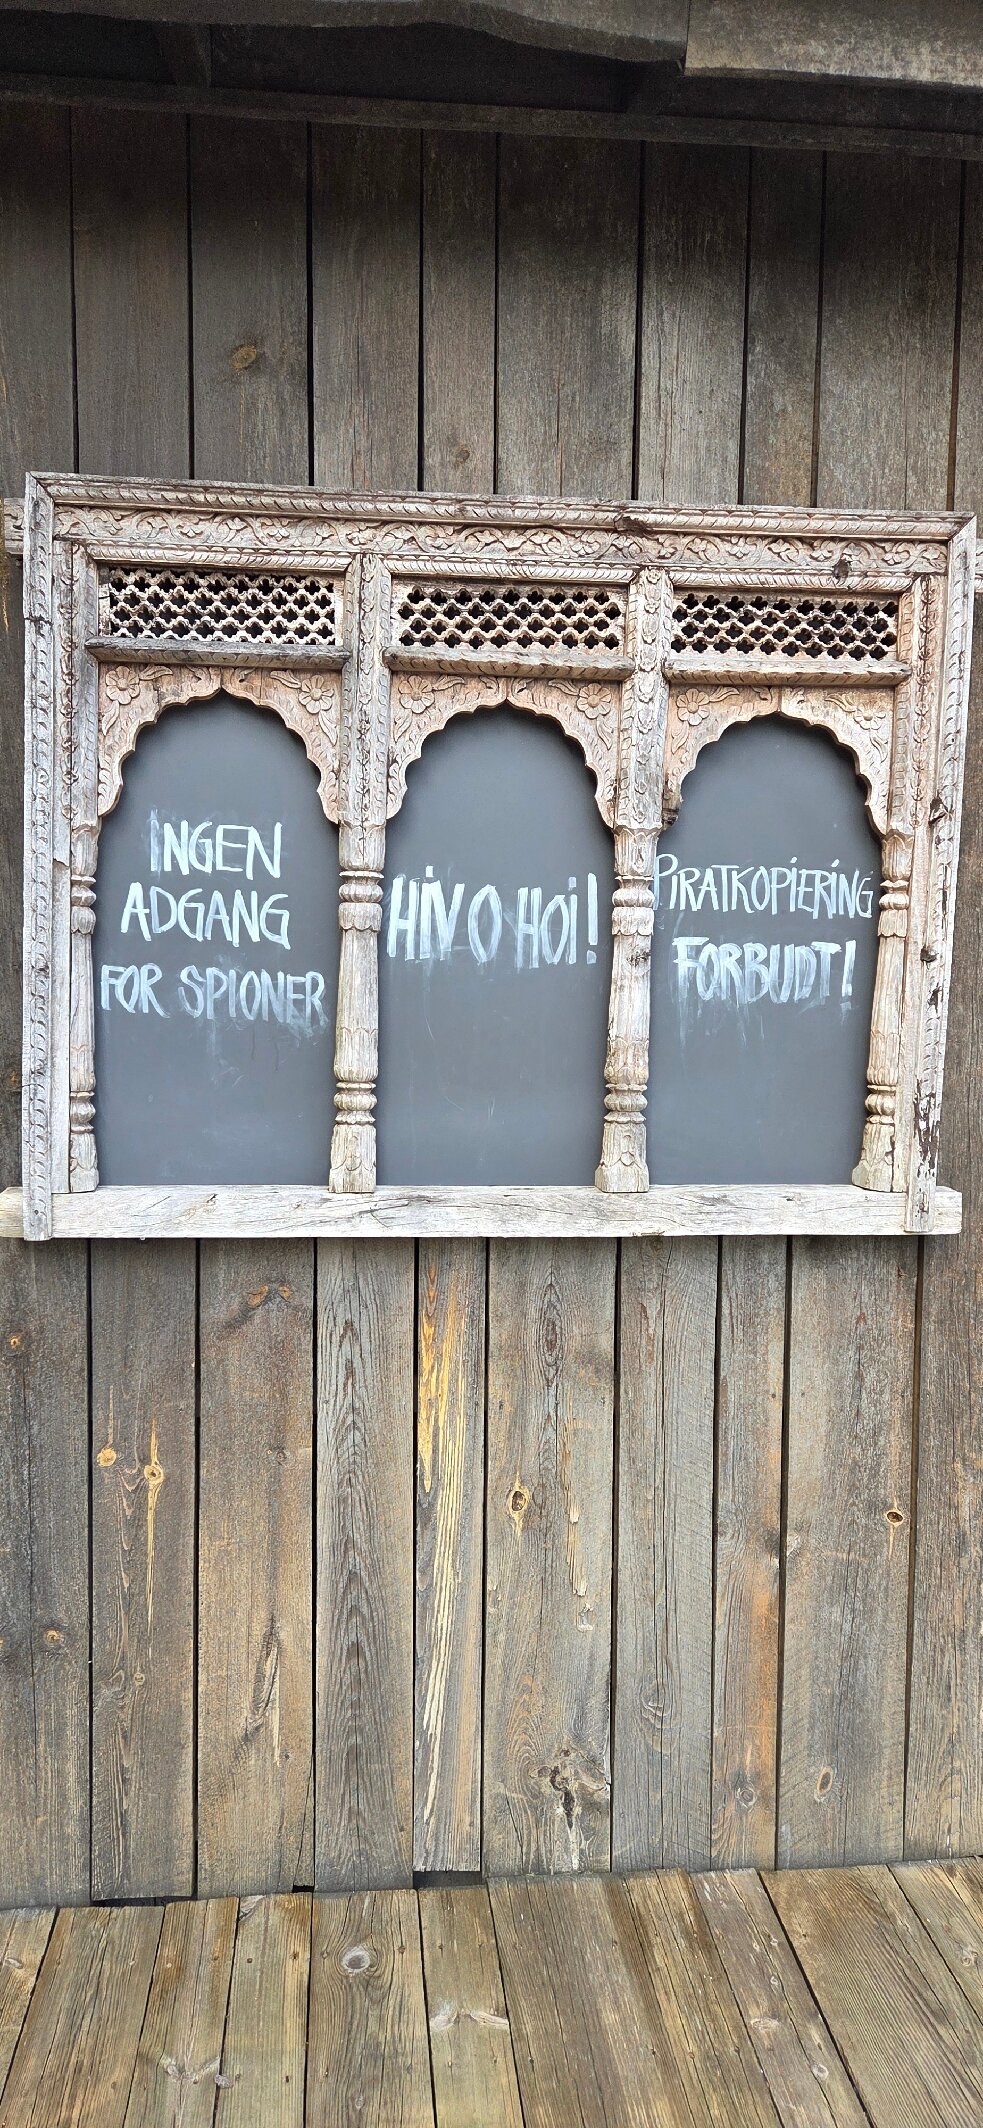 INGEN
ADGANG
FOR SPIONER
HIV O HOI!
PIRATKOPIERING
FORBUDT!